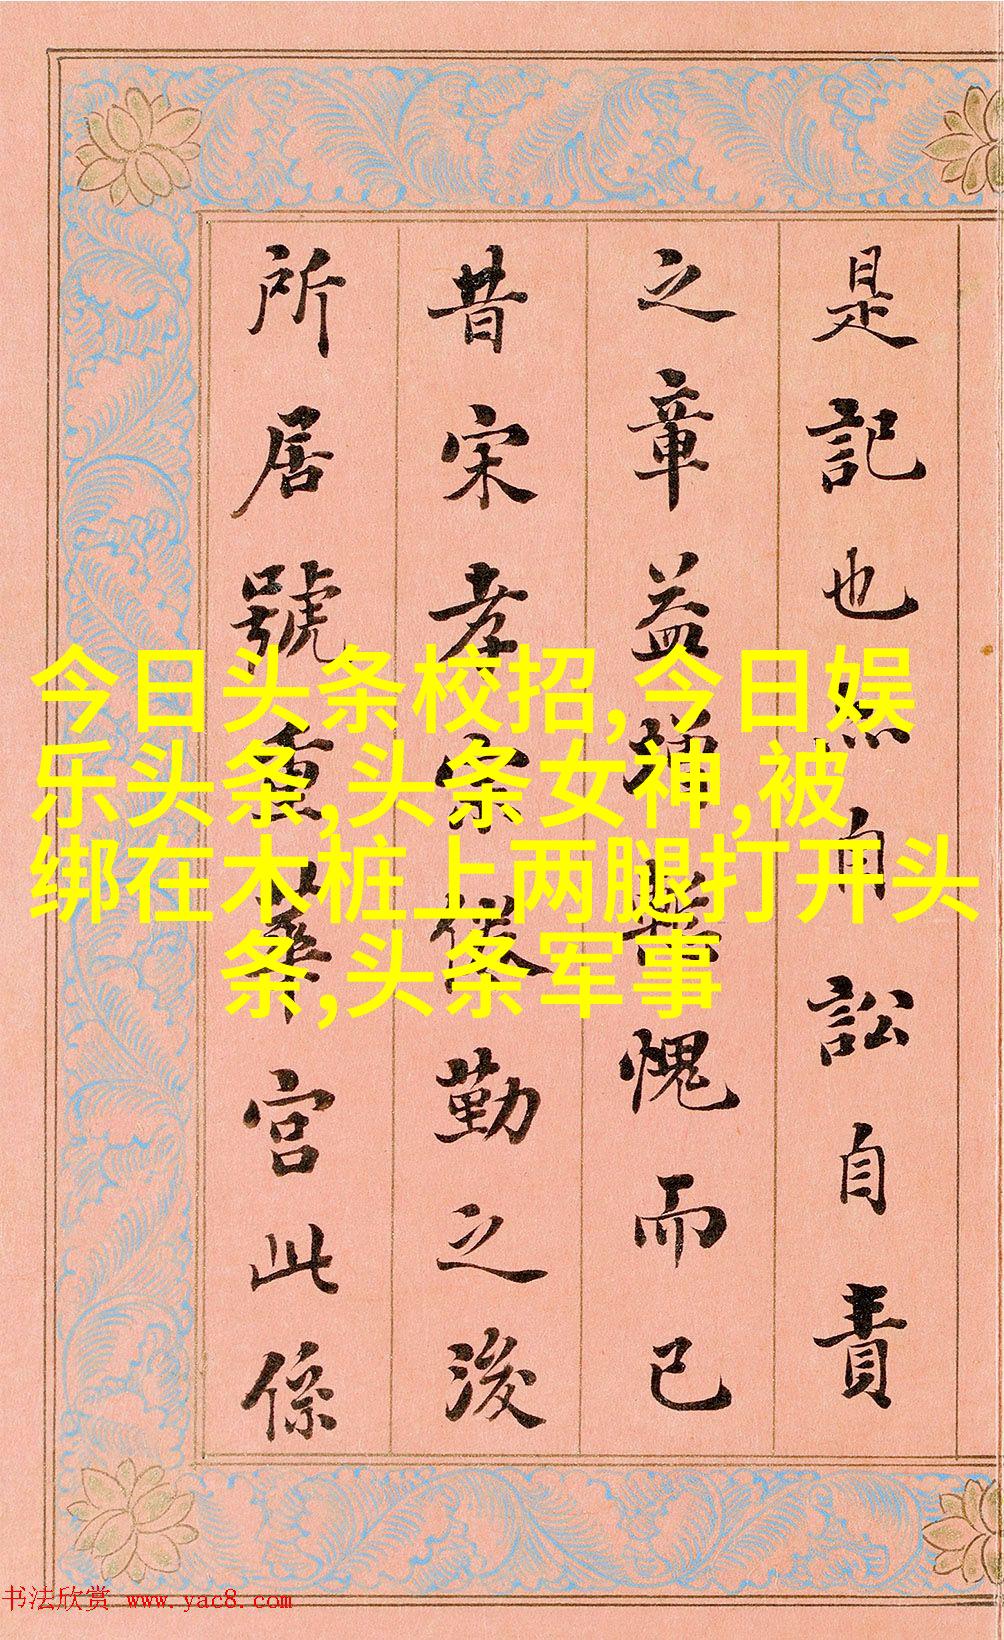 是記也自訟自責
之章益增愧而已
昔宋孝宗倦勤之後
所居號重華宮此係
今日头条校招,今日娱
乐头条,头条女神,被
绑在木桩上两腿打开头
条,头条军事
书法欣赏 www.yac8.com